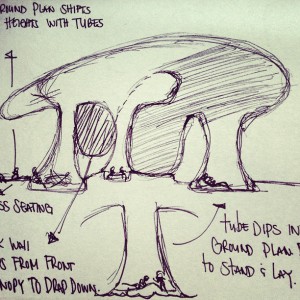 ROUND PLAN SHIFTS
HEIGHTS WITH TUBES
SS SEATING
K WALL
S FROM FRONT
NOPY TO DROP DOWN.
TUBE DIPS IN
GROUND PLAN
TO STAND & LAY.